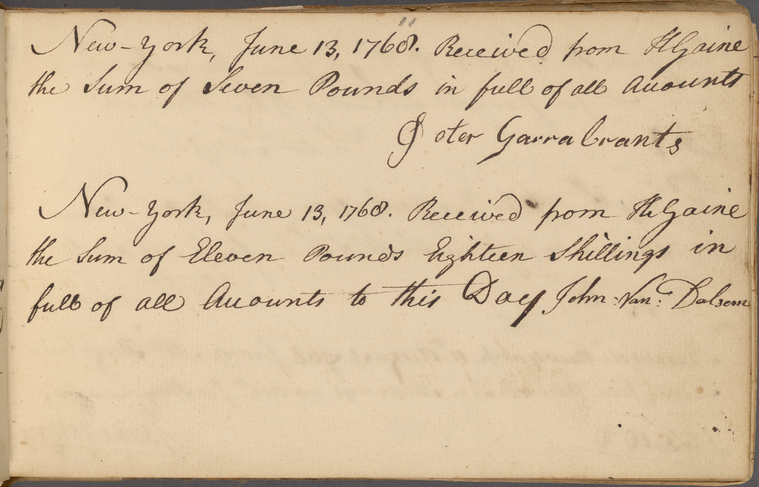 New-York, June 13, 1768. Received from HGaine
the Sum of Seven Pounds in full of all Accounts
Peter Garrabrants
New-York, June 13, 1768. Received from HGaine
the Sum of Eleven Pounds Eighteen Shillings in
full of all Accounts to this Day John Van: Dalsem